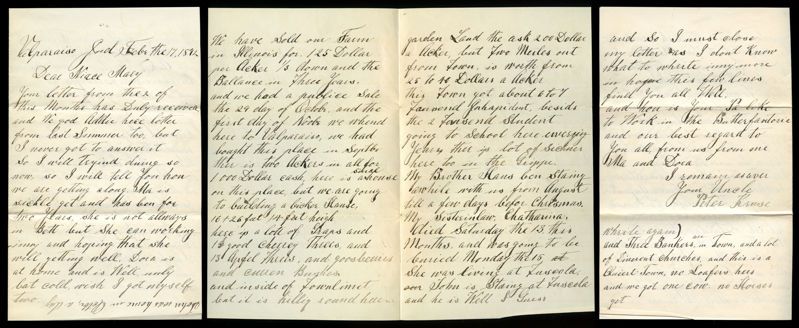 Valparaiso Ind Febr the 17, 1892.
Dear Niece Mary
Your letter from the 2 of
this Month has Duly received
and the god other hier letter
from last Sommer too, but
I never got to answer it
So I will tryind doing so
now. so I will tell you how
we are getting along Ma is
sickle yet and has ben for
two Years, she is not allways
in Bett but She can working
inny and hoping that she
will getting well. Dora is
at home and is Well only
bat cold. wish I got myself
two.
We have Sold our Farm
in Illinois for 125 Dollar
per Acker 1/3 down and the
Ballance in Three Years.
and we had a publice Sale
the 29 day of Octob. and the
first day of Novb we whend
here to Valparaiso, we had
bought this place in Septbr
ther is two Ackers in all for
1000 Dollar cash, here is a small house
on this place, but we are going
to building a bicker House.
16+26 feet 14 feet heigh
here is a lot of Kraps and
18 good Cherrey Threes, and
13 Appel Threes, and goosberries
and Bushes
and inside of townlimet
but it is hilly round here
garden Land the ask 200 Dollar
a Acker, but two Meiles out
from town, is worth from
25 to 40 Dollars a Acker
this Town got about 6 to 7
Tausend Inhapident, beside
the 2 Tausend Student
going to School here everrey
Year, ther is lot of Sickner
here too in the Grippe.
My Brother Hans ben Staing
awhile with us from August
till a few days befor Christmas.
My Sisterinlaw, Chatharina,
died Saturday the 13, this
Months, and was going to be
buried Monday the 15,
She was living at Tuscola.
our John is Staing at Tuscola
and he is Well I Guess
and so I must close
my letter as I dont know
what to whrite inny more
in hope this few lines
find You all Well.
and You is Your Pa like
to Work in the Butterfactorie
and our best regard to
You all from us from one
Ma and Dora
I romain as aver
Your Uncle
Peter Kruse
whrite again)
and Three Bankers, in Town, and a lot
of Diferent Churches, and this is a
Quiert Town, no Loafers hier
and we got one Cow. no Horses
yet